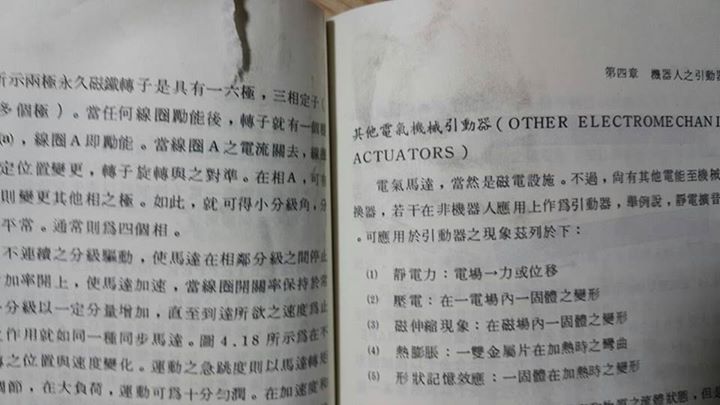 所示兩極永久磁鐵轉子是具有一六極，三相定子（
多個極）。當任何線圈勵能後，轉子就有一個
(a)，線圈A即勵能。當線圈A之電流關去，線
定位置變更，轉子旋轉與之對準。在相A，可
則變更其他相之極。如此，就可得小分級角，分
平常。通常則爲四個相。
不連續之分級驅動，使馬達在相鄰分級之間停止
加率開上，使馬達加速，當線圈開關率保持於常
分級以一定分量增加，直至到達所欲之速度爲止
作用就如同一種同步馬達。圖4.18所示爲在不
之位置與速度變化。運動之急跳度則以馬達轉矩
調節，在大負荷，運動可爲十分勻潤。在加速度和
第四章 機器人之引動器
其他電氣機械引動器（OTHER ELECTROMECHANI
ACTUATORS）
電氣馬達，當然是磁電設施。不過，尙有其他電能至機械
換器，若干在非機器人應用上作爲引動器，舉例說，靜電擴音
。可應用於引動器之現象茲列於下：
(1) 靜電力：電場─力或位移
(2) 壓電：在一電場內一固體之變形
(3) 磁伸縮現象：在磁場內一固體之變形
(4) 熱膨脹：一雙金屬片在加熱時之彎曲
(5) 形狀記憶效應：一固體在加熱時之變形
物質之流體狀態，但是